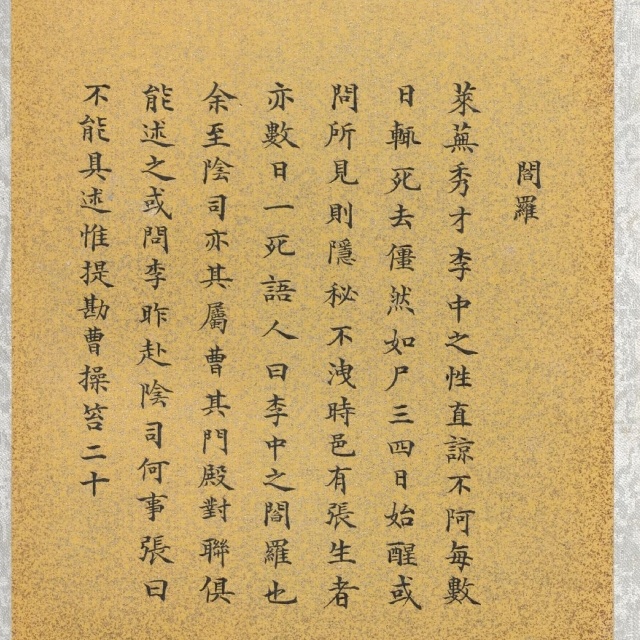 閻羅
萊蕪秀才李中之性直諒不阿每數
日輙死去僵然如尸三四日始醒或
問所見則隱秘不洩時邑有張生者
亦數日一死語人曰李中之閻羅也
余至陰司亦其屬曹其門殿對聯俱
能述之或問李昨赴陰司何事張曰
不能具述惟提勘曹操笞二十